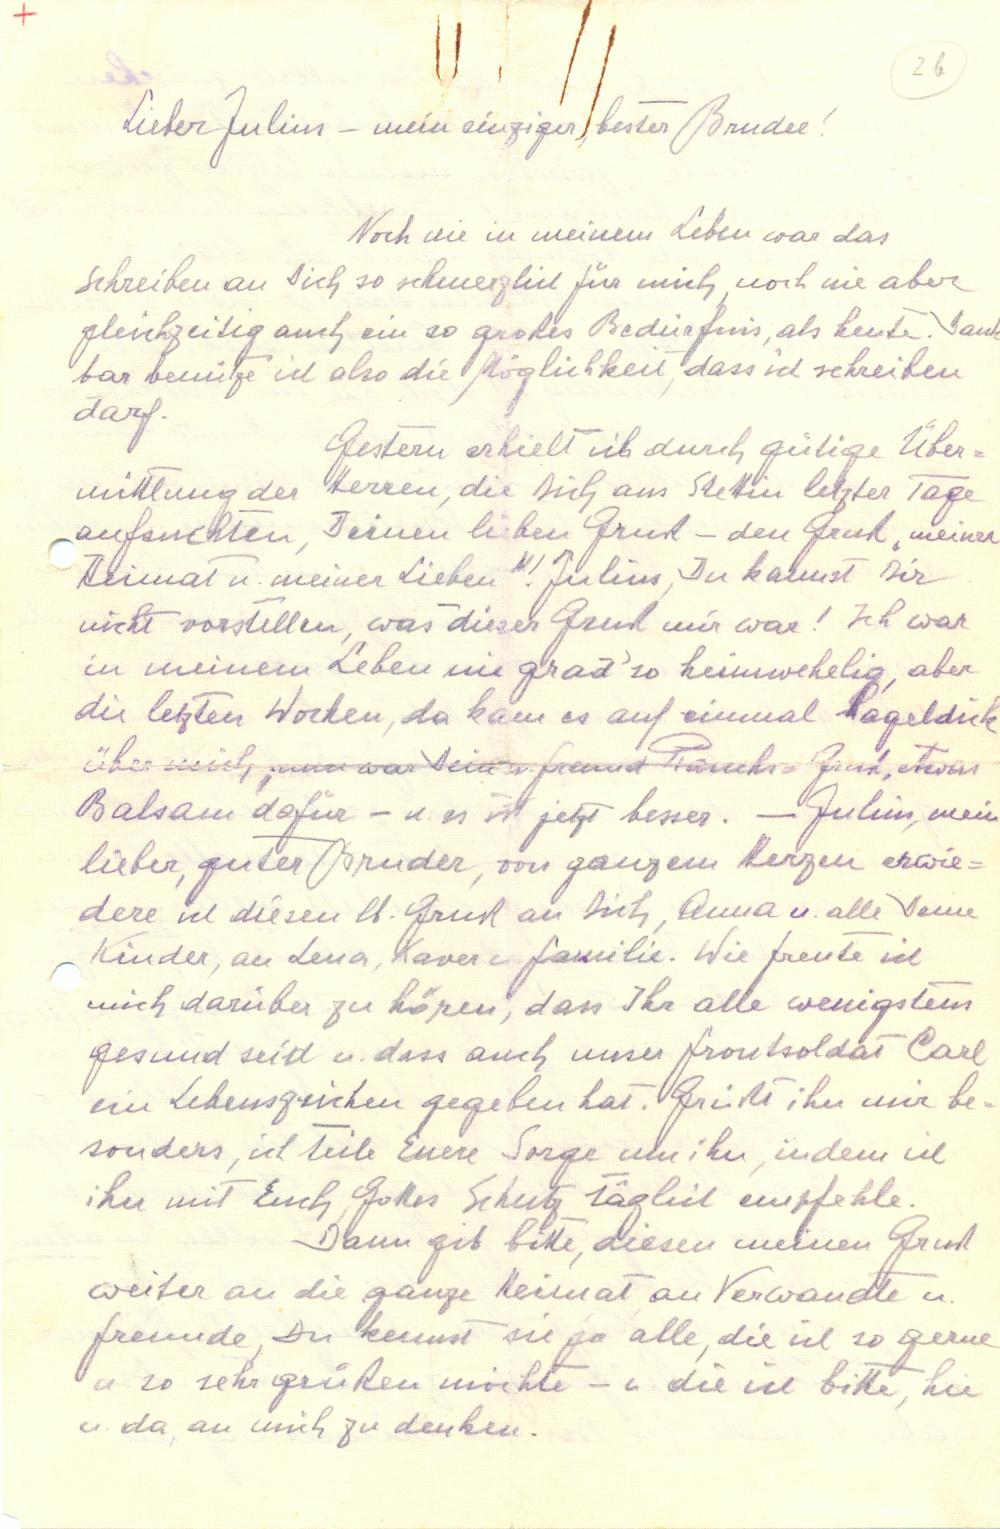 +
26
Lieber Julius – mein einziger, bester Bruder!
Noch nie in meinem Leben war das
Schreiben an Dich so schmerzlich für mich, noch nie aber
gleichzeitig auch ein so großes Bedürfnis, als heute. Dank
bar benütze ich also die Möglichkeit, dass ich schreiben
darf.
Gestern erhielt ich durch gütige Über=
mittlung der Herren, die Dich aus Stettin letzter Tage
aufsuchten, Deinen lieben Gruß – den Gruß „meiner
Heimat u. meiner Lieben"! Julius, Du kannst Dir
nicht vorstellen, was dieser Gruß mir war! Ich war
in meinem Leben nie grad' so heimwehelig, aber
die letzten Wochen, da kam es auf einmal hageldick
über mich, nun war Dein u. freund Gruß, etwas
Balsam dafür – u. es ist jetzt besser. – Julius, mein
lieber, guter Bruder, von ganzem Herzen erwie=
dere ich diesen lb. Gruß an Dich, Anna u. alle Deine
Kinder, an Lena, Xaver u. familie. Wie freute ich
mich darüber zu hören, dass Ihr alle wenigstens
gesund seid u. dass auch unser frontsoldat Carl
ein Lebenszeichen gegeben hat. Grüßt ihn mir be=
sonders, ich teile Euere Sorge um ihn, indem ich
ihn mit Euch Gottes Schutz täglich empfehle.
Dann gib bitte, diesen meinen Gruß
weiter an die ganze Heimat, an Verwandte u.
freunde, Du kennst sie ja alle, die ich so gerne
u. so sehr grüßen möchte – u. die ich bitte, hie
u. da, an mich zu denken.